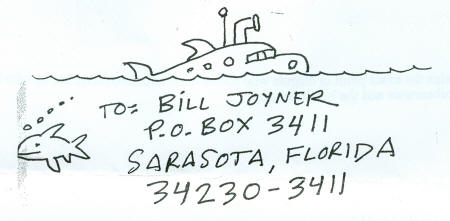 TO: BILL JOYNER
P.O. BOX 3411
SARASOTA, FLORIDA
34230-3411